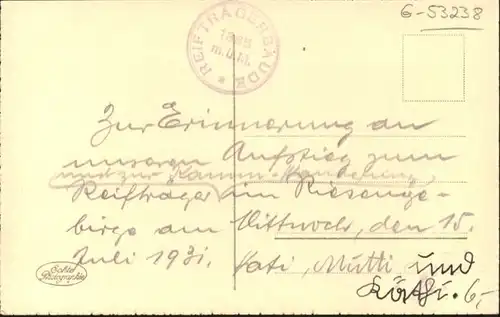 G-53238
REIFTRÄGERBAUDE
1350
m.ü.M.
Zur Erinnerung an
unseren Aufstieg zum
und zur Kamm-Wanderung,
Reifträger im Riesenge-
birge am Mittwoch, den 15.
Juli 1931. Vati, Mutti und
Käthi. 6,-
Echte
Photographie